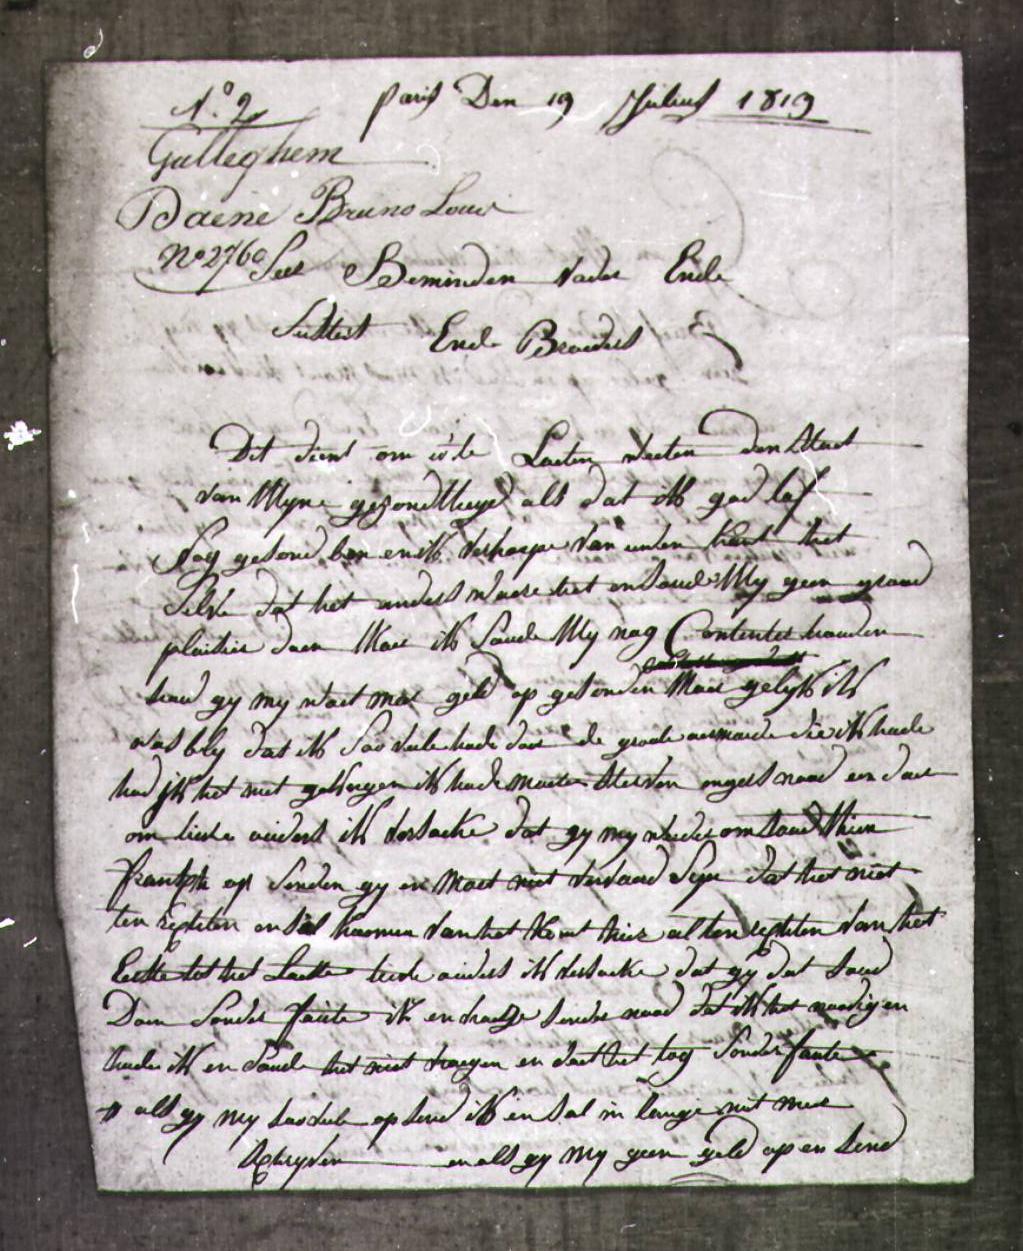 N.º 2 paris Den 19 Julius 1813
Gulleghem
Daene Bruno Louis
Nº 2760 Seer Beminden vader Ende
Susters Ende Broeders
Dit dient om u te Laeten weeten den staet
van Myne gezondtheyd als dat ik god lof
nog gesond ben en ik verhoope van ulen kant het
Selve dat het anders waere het en soude My geen groed
plaisier doen Maer ik Soude My nog Contenter houden
had gy my wat mer geld op gesonden Maer gelyk ik
was bly dat ik Soo vele hade door de groote aermoede die ik hade
had ik het niet gekregen ik hade moeten sterven ongers nood en daer
om lieve auders ik versoeke dat gy my wederom soud thien
frank op senden gy en Moet niet vervaerd Syn dat het niet
ten rechten en sal koomen van het komt hier al ten rechten van het
Eerste tot het Laeste lieve auders ik versoeke dat gy dat soud
Doen Sonder faute ik en draege sonder nood dat ik het noodig en
hade ik en soude het niet vraegen en doet het tog Sonder faute
als gy my soo vele op send ik en sal in lange niet meer
schryven en als gy my geen geld op en send